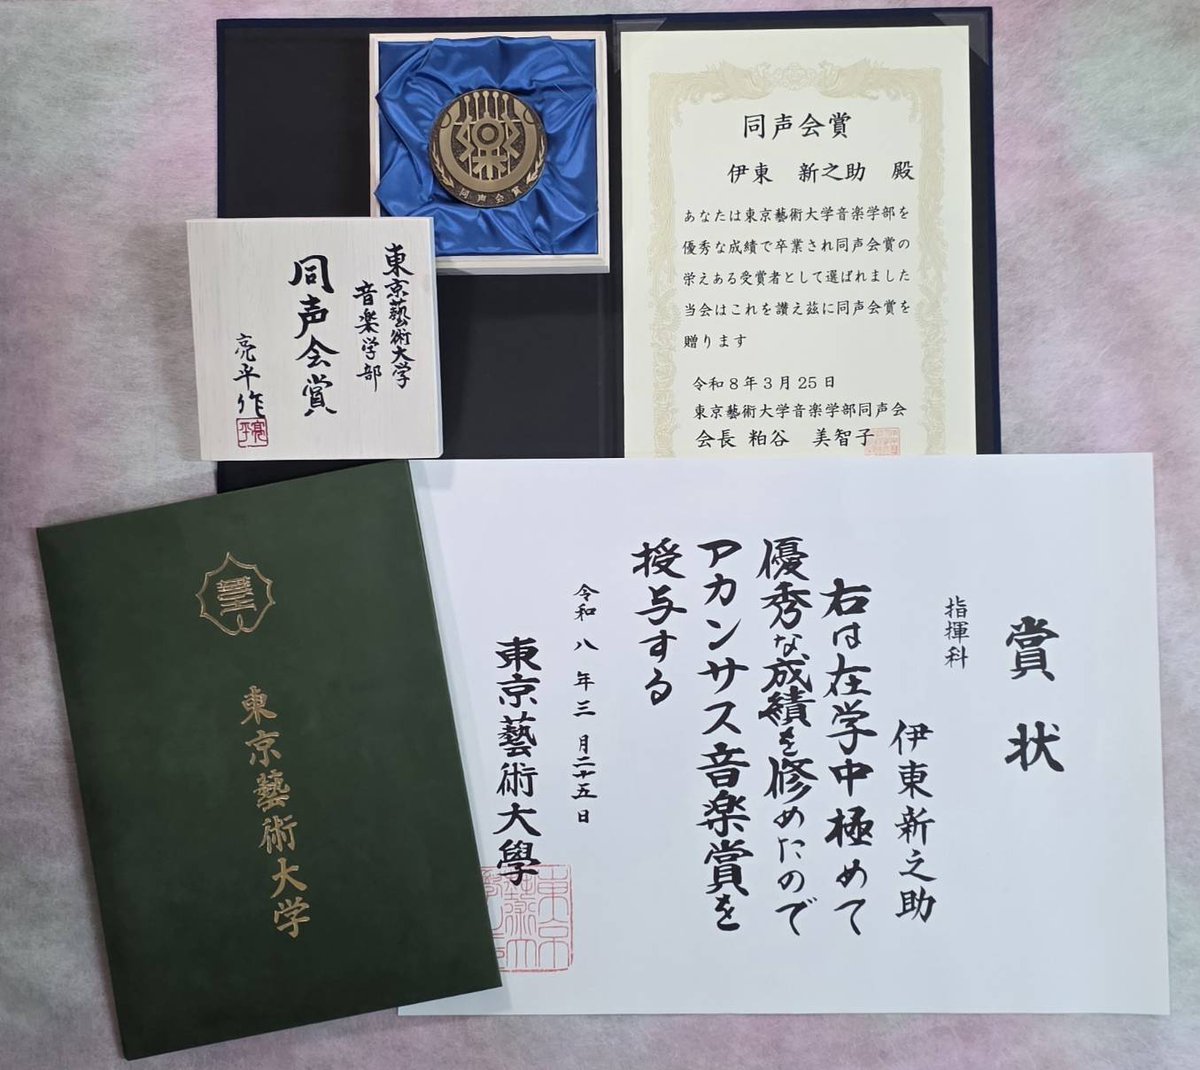 同声会賞
同声会賞
伊東 新之助 殿
あなたは東京藝術大学音楽学部を
優秀な成績で卒業され同声会賞の
栄えある受賞者として選ばれました
当会はこれを讃え茲に同声会賞を
贈ります
令和8年3月25日
東京藝術大学音楽学部同声会
会長 粕谷 美智子
東京藝術大学
音楽学部
同声会賞
亮平作
東京藝術大学
賞状
指揮科
伊東新之助
右は在学中極めて
優秀な成績を修めたので
アカンサス音楽賞を
授与する
令和八年三月二十五日
東京藝術大學